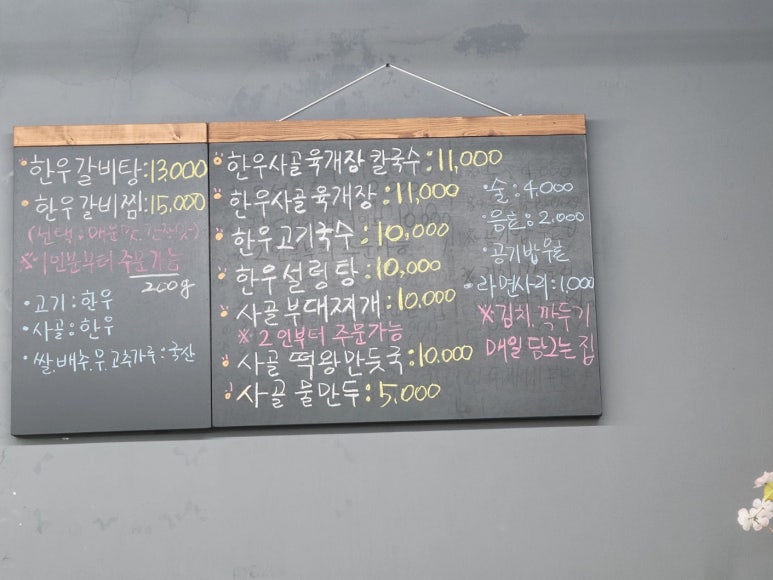 한우갈비탕:13000
한우갈비찜:15,000
(선택:매운맛,간장맛)
※1인분부터 주문가능
200g
·고기:한우
·사골:한우
·쌀,배추,무,고추가루:국산
한우사골육개장칼국수:11,000
한우사골육개장:11,000
한우고기국수:10,000
한우설렁탕:10,000
사골부대찌개:10,000
※2인부터 주문가능
사골 떡왕만듯국:10,000
사골 물만두:5,000
·술:4,000
·음료:2,000
·공기밥무료
·라면사리:1,000
※김치, 깍두기
매일 담그는 집